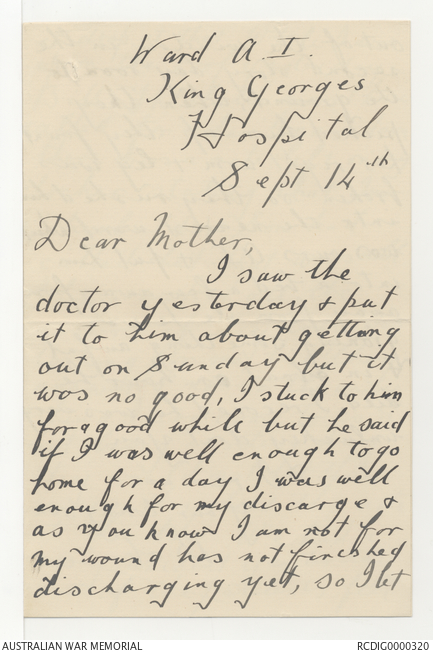 Ward A I.
King Georges
Hospital
Sept 14th
Dear Mother,
I saw the
doctor yesterday & put
it to him about getting
out on Sunday but it
was no good, I stuck to him
for a good while but he said
if I was well enough to go
home for a day I was well
enough for my discarge &
as you know I am not for
my wound has not finished
discharging yet, so I let
AUSTRALIAN WAR MEMORIAL
RCDIG0000320